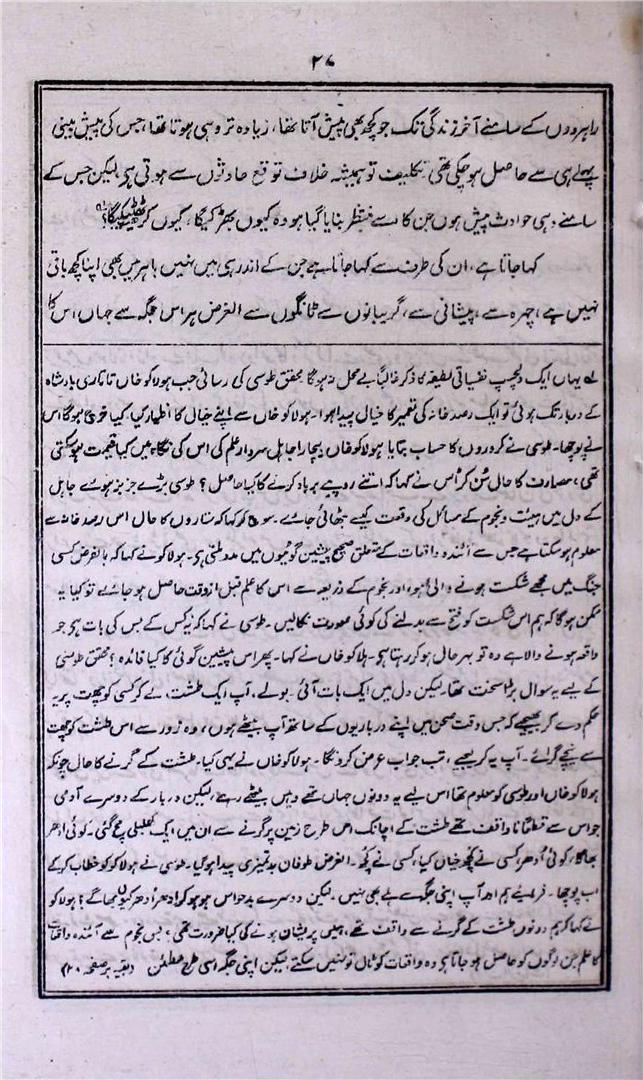 ۲۷
راہروؤں کے سامنے آخر زندگی تک جو کچھ بھی پیش آتا تھا، زیادہ تر وہی ہوتا تھا، جس کی پیش بینی
پہلے ہی سے حاصل ہو چکی تھی، تکلیف تو ہمیشہ خلاف توقع حادثوں سے ہوتی ہی لیکن جس کے
سامنے وہی حوادث پیش ہوں جن کا اسے منتظر بنایا گیا ہو وہ کیوں بھڑکیگا، کیوں کر
کہا جاتا ہے، ان کی طرف سے کہا جاتا ہے جن کے اندر ہی میں نہیں باہر میں بھی اپنا کچھ باقی
نہیں ہے، چہرہ سے، پیشانی سے، گریبانوں سے ٹانگوں سے الغرض ہر اس جگہ سے جہاں اس کا
لہ یہاں ایک دلچسپ نفسیاتی لطیفہ کا ذکر غالباً بے محل نہ ہوگا محقق طوسی کی رسائی جب ہولاکو خاں تاتاری بادشاہ
کے دربار تک ہوئی تو ایک رصد خانہ کی تعمیر کا خیال پیدا ہوا۔ ہولاکو خاں سے اپنے خیال کا اظہار کیا۔ کیا خرچ ہوگا اس
نے پوچھا۔ طوسی نے کروروں کا حساب بتایا ہولاکو خاں بیچارا جاہل سردار علم کی اس کی نگاہ میں کیا قیمت ہو سکتی
تھی، مصارف کا حال سُن کر اُس نے کہا کہ اتنے روپیے برباد کرنے کا کیا حاصل؟ طوسی بڑے جز بز ہوئے جاہل
کے دل میں ہیئت و نجوم کے مسائل کی وقعت کیسے بٹھائی جائے۔ سوچ کر کہا کہ ستاروں کا حال اس رصد خانہ سے
معلوم ہو سکتا ہے جس سے آئندہ واقعات کے متعلق صحیح پیشین گوئیوں میں مدد ملتی ہی۔ ہولاکو نے کہا کہ بالفرض کسی
جنگ میں مجھے شکست ہونے والی ہو، اور نجوم کے ذریعہ سے اس کا علم قبل از وقت حاصل ہو جائے تو کیا یہ
ممکن ہوگا کہ ہم اس شکست کو فتح سے بدلنے کی کوئی صورت نکالیں۔ طوسی نے کہا کہ یہ کس کے بس کی بات ہی جو
واقعہ ہونے والا ہے وہ تو بہر حال ہو کر رہتا ہی۔ ہلاکو خاں نے کہا۔ پھر اس پیشین گوئی کا کیا فائدہ؟ محقق طوسی
کے لیے یہ سوال بڑا سخت تھا۔ لیکن دل میں ایک بات آئی۔ بولے، آپ ایک طشت لے کر کسی کو چھت پر یہ
حکم دے کر بھیجیے کہ جس وقت صحن میں اپنے درباریوں کے ساتھ آپ بیٹھے ہوں، وہ زور سے اس طشت کو چھت
سے نیچے گرائے۔ آپ یہ کر لیجیے، تب جواب عرض کرونگا۔ ہولاکو خاں نے یہی کیا۔ طشت کے گرنے کا حال چونکہ
ہولاکو خاں اور طوسی کو معلوم تھا اس لیے یہ دونوں جہاں تھے وہیں بیٹھے رہے، لیکن دربار کے دوسرے آدمی
جو اس سے قطعاً ناواقف تھے طشت کے اچانک اس طرح زمین پر گرنے سے ان میں ایک کھلبلی مچ گئی۔ کوئی ادھر
بھاگا، کوئی اُدھر، کسی نے کچھ خیال کیا، کسی نے کچھ۔ الغرض طوفان بدتمیزی پیدا ہو گیا۔ طوسی نے ہولاکو کو خطاب کر کے
اب پوچھا۔ فرمائیے ہم اور آپ اپنی جگہ سے ہلے بھی نہیں۔ لیکن دوسرے بدحواس ہو ہو کر ادھر اُدھر کیوں بھاگے؟ ہولاکو
نے کہا کہ ہم دونوں طشت کے گرنے سے واقف تھے، ہمیں پریشان ہونے کی کیا ضرورت تھی؟ بس نجوم سے آئندہ واقعات
کا علم جن لوگوں کو حاصل ہو جاتا ہی وہ واقعات کو ٹال تو نہیں سکتے، لیکن اپنی جگہ اسی طرح مطمئن (بقیہ بر صفحہ ۲۰)